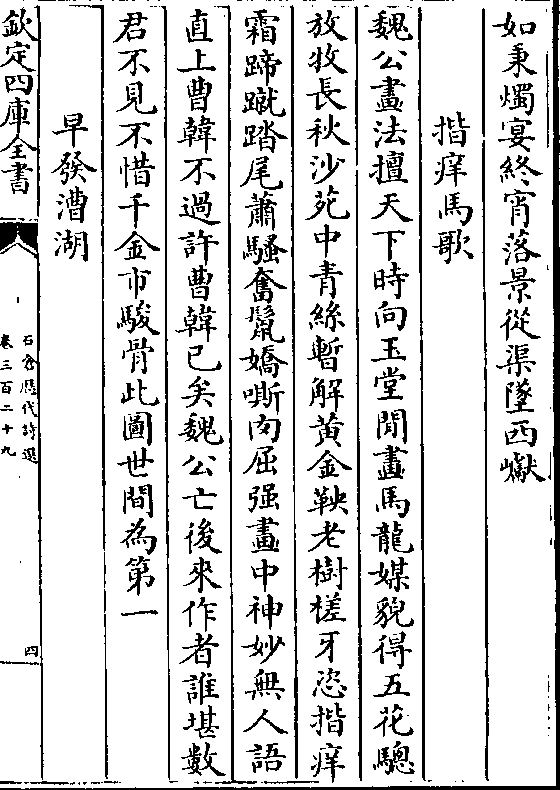 如秉燭宴終宵落景從渠墜西巘
揩痒馬歌
魏公畫法擅天下時向玉堂閒畫馬龍媒貌得五花驄
放牧長秋沙苑中青絲暫解黄金鞅老樹槎牙恣揩痒
霜蹄蹴踏尾蕭騷奮鬛嬌嘶肉屈强畫中神妙無人語
直上曹韓不過許曹韓已矣魏公亡後來作者誰堪數
君不見不惜千金市駿骨此圖世間為第一
早發漕湖
欽定四庫全書
石倉歷代詩選
卷三百二十九
四